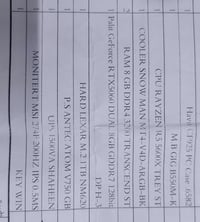 Havit GT925 PC Case .6582
M.B GIG B550M-K
CPU RAYZEN R5 5600X TREY ST
COOLER SNOW MAN MT4-V4D-ARGB-BK
RAM 8 GB DDR4 3200 TRANSCEND ST
Palit GeForce RTX5060 DUAL 8GB GDDR7 128bit
DP H-3
HARD LEXAR M.2 1TB NM620
P.S ANTEC ATOM V750 GB
UPS 1500VA SHAHEEN
MONITER MSI 24F 200HZ IPS 0.5MS
KEY WIN